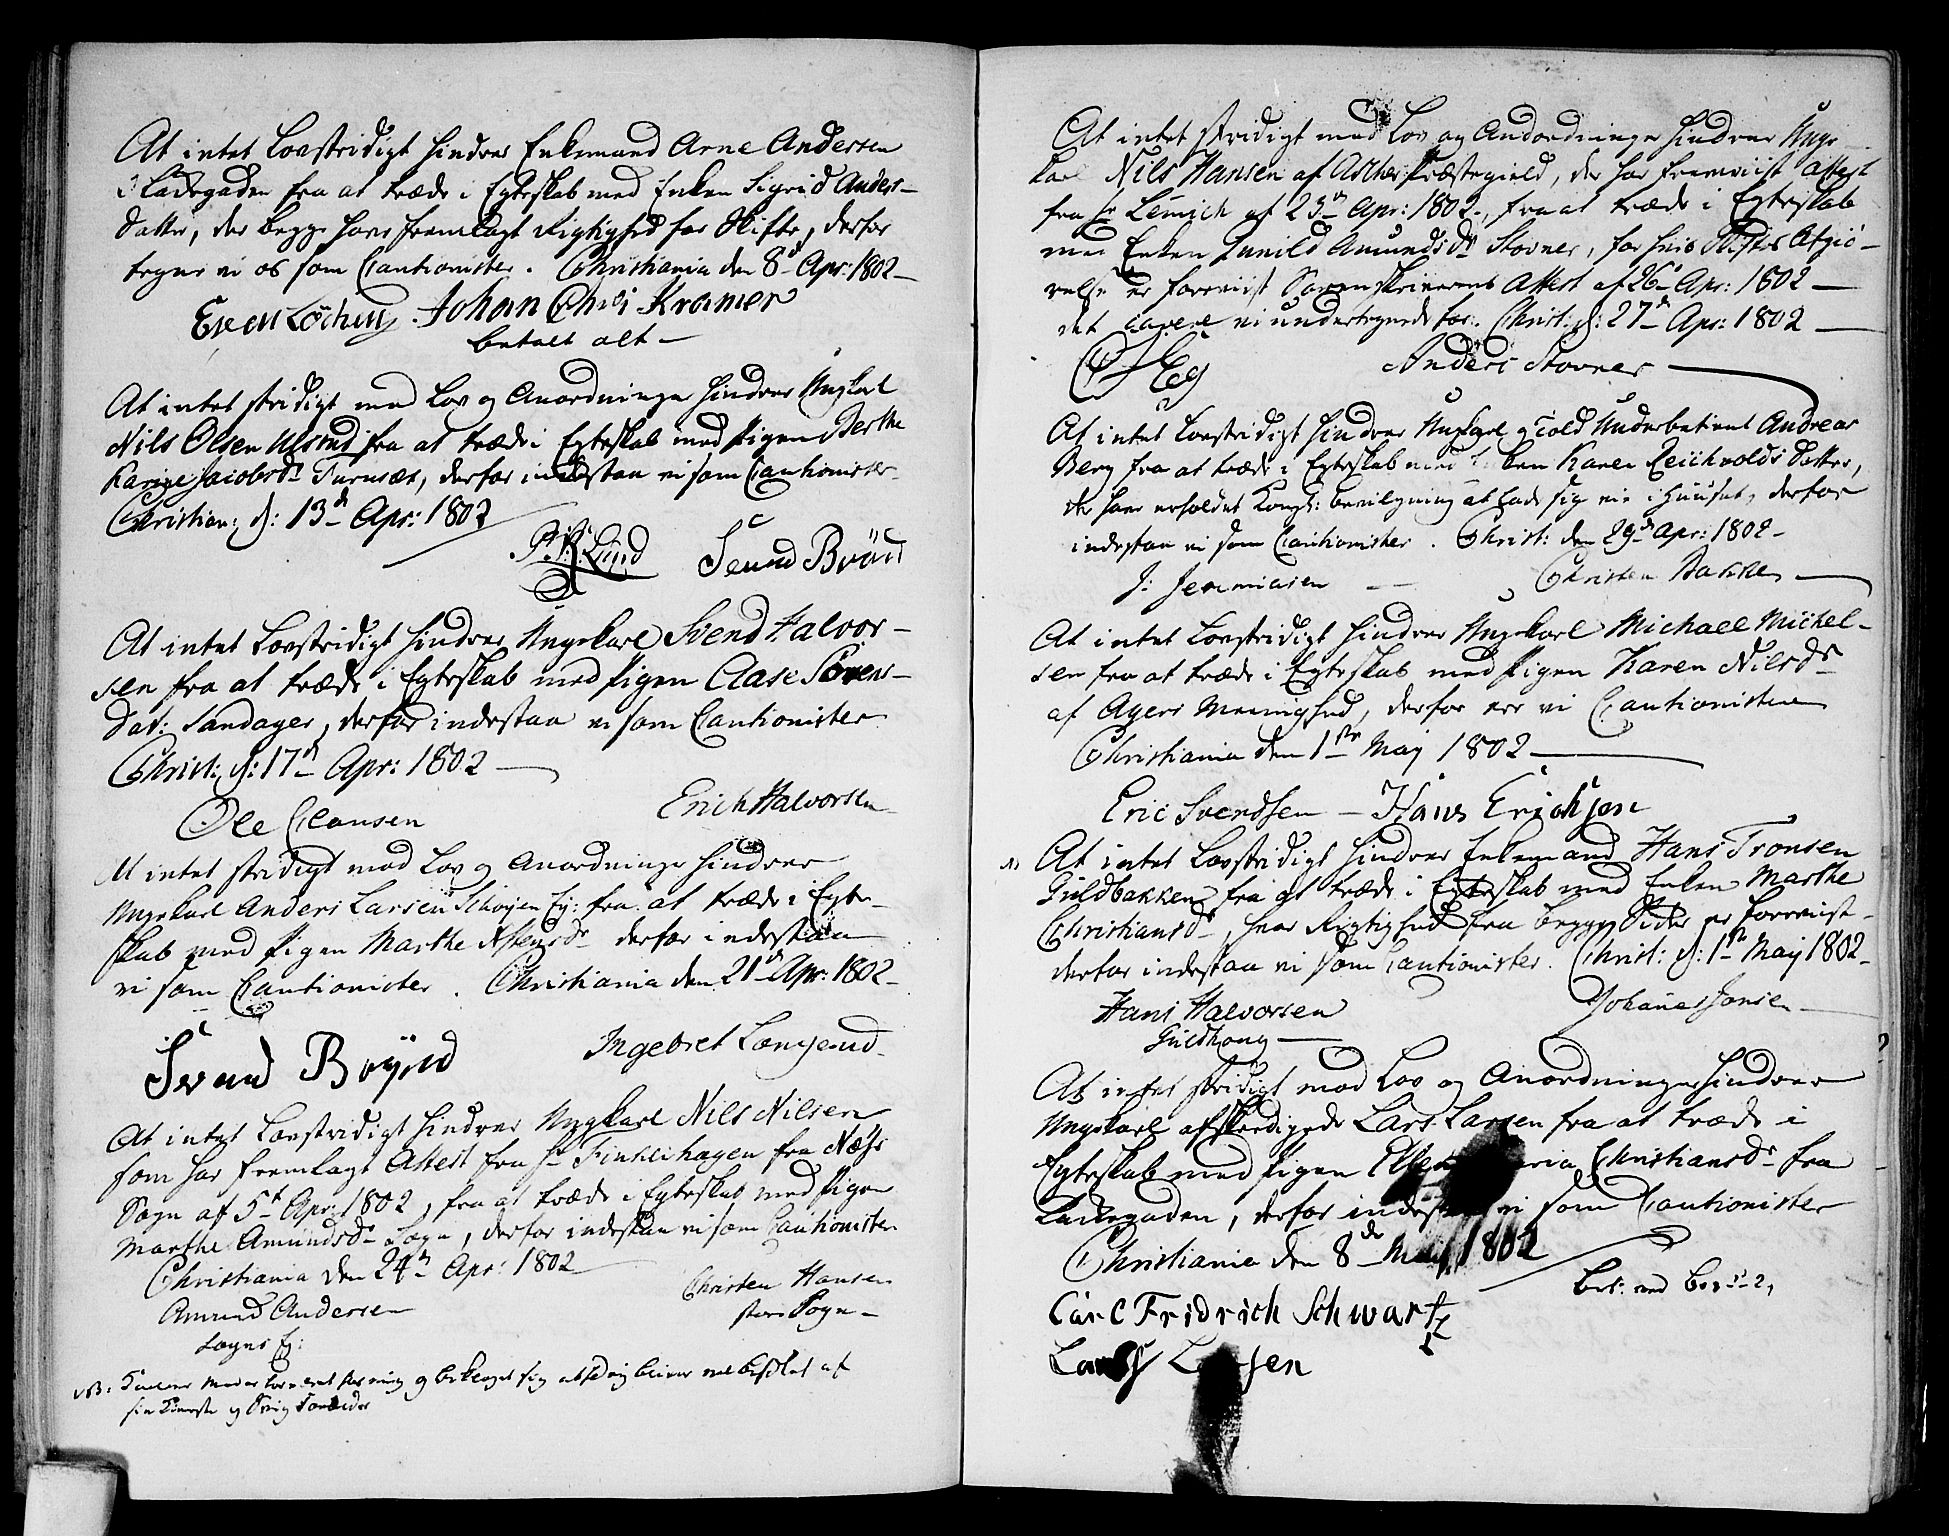 At intet Lovstridigt hindrer Enkemand Arne Andersen
i Ladegaden fra at træde i Egteskab med Enken Sigrid Anders-
datter, der begge have fremlagt Rigtighed for Skifte, derfor
tegne vi os som Cautionister. Christiania den 8de Apr: 1802
Johan Chri Kramer
betalt alt
At intet stridigt med Lov og Anordninger hindrer Ungkarl
Nils Olsen Ulsrud fra at træde i Egteskab med Pigen Berthe
Karine Jacobsdr Furuset, derfor indestaa vi som Cautionister
Christian: d: 13de Apr: 1802
Lund Svend Bröud
At intet Lovstridigt hindrer Ungekarl Svend Halvor-
sen fra at træde i Egteskab med Pigen Aase Sörens-
dat: Sandager, derfor indestaa vi som Cautionister
Christ: d: 17de Apr: 1802
Ole Clausen Erich Halvorsen
At intet stridigt mod Lov og Anordninger hindrer
Ungekarl Anders Larsen Schøyen Ej: fra at træde i Egte-
skab med Pigen Marthe derfor indestaa
vi som Cautionister. Christiania den 21de Apr: 1802
Svend Ingebret
At intet Lovstridigt hindrer Ungkarl Nils Nilsen
som har fremlagt Attest fra Hr Finkenhagen fra Næss
Sogn af 5te Apr: 1802, fra at træde i Egteskab med Pigen
Marthe Amundsdr Sogn, derfor indestaa vi som Cautionister
Christiania den 24de Apr: 1802
Christen Hansen
Amund Andersen store Sogn
Sogns Ej:
NB:
At intet stridigt med Lov og Andordninger hindrer Unge
karl Nils Hansen af Asker Præstegield, der har fremviist Attest
fra Hr Lemich af 23de Apr: 1802, fra at træde i Egteskab
med Enken Gunild Amundsdr Stovner, for hvis Skiftes Afgiö-
relse er foreviist Sorenskriverens Attest af 26de Apr: 1802
det cavere vi undertegnede for. Christ: d: 27de Apr: 1802
Anders Stovner
At intet Lovstridigt hindrer Ungkarl og Told Underbetient Andreas
Berg fra at træde i Egteskab med Enken Karen Reichvolds Datter,
der have erholdet Kongl: bevilgning at lade sig vie i Huuset, derfor
indestaa vi som Cautionister. Christ: den 29de Apr: 1802
J: Jeremiasen Christen Bakke
At intet Lovstridigt hindrer Ungekarl Michael Michel-
sen fra at træde i Egteskab med Pigen Karen Nilsdr
af Agers Meenighed, derfor ere vi Cautionisterne
Christiania den 1ste May 1802
Eric Svendsen - Hans Erichsen
At intet Lovstridigt hindrer Enkemand Hans Tronsen
Guldbakken fra at træde i Egteskab med Enken Marthe
Christiansdr, hvor Rigtighed fra begge Sider er foreviist
derfor indestaa vi som Cautionister. Christ: d: 1ste May 1802
Hans Halvorsen Johanes Jonsen
Guldhoug
At intet stridigt mod Lov og Anordninger hindrer
Ungekarl afskedigede Lars Larsen fra at træde i
Egteskab med Pigen Ellen Maria Christiansdr fra
Ladegaden, derfor indestaa vi som Cautionister
Christiania den 8de May 1802
Carl Fridrich Schwartz
Larsen